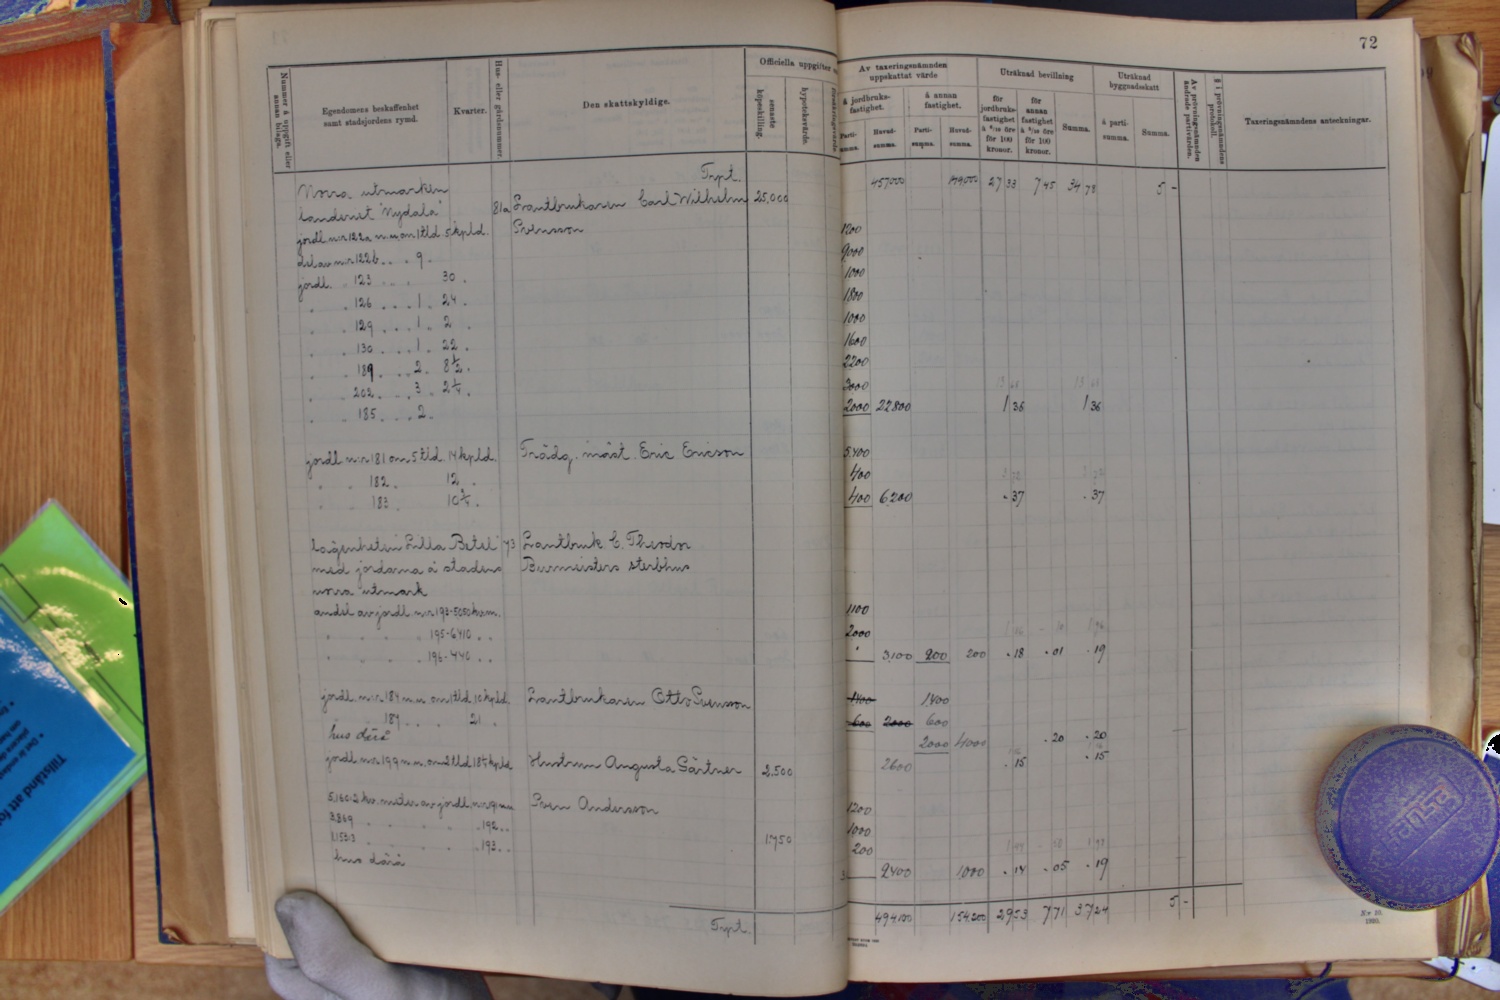 72
Nummer å uppgift eller annan bilaga.
Egendomens beskaffenhet samt stadsjordens rymd.
Kvarter.
Hus- eller gårdsnummer.
Den skattskyldige.
Officiella uppgifter
senaste köpeskilling.
hypoteksvärde.
Av taxeringsnämnden uppskattat värde
å jordbruksfastighet.
å annan fastighet.
Partisumma.
Huvudsumma.
Partisumma.
Huvudsumma.
Uträknad bevillning
för jordbruksfastighet
för annan fastighet
för 100 kronor.
för 100 kronor.
Summa.
Uträknad byggnadsskatt
å partisumma.
Summa.
Av prövningsnämnden ändrade partivärden.
§ i prövningsnämndens protokoll.
Taxeringsnämndens anteckningar.
Trpt. 457000 149,000 27 33 7 45 34 78 5 -
Norra utmarken
landeriet "Nydala" 81a Lantbrukaren Carl Wilhelm 25,000
jordl n:r 122a m.m om 1 tld 5 kpld. Svensson 1200
del av n:r 122b . . . 9 . 9000
jordl. . 123 . . . 30 . 1000
. . 126 . . . 1 . 24 . 1800
. . 129 . . . 1 . 2 . 1000
. . 130 . . . 1 . 22 . 1600
. . 189 . . . 2 . 8½ . 2200
. . 202 . . . 3 . 2¼ . 3000
. . 185 . . . 2 . 2000 22,800 1 36 1 36
jordl n:r 181 om 5 tld. 14 kpld. Trädg. mäst. Eric Ericson 5,400
. . 182 . 12 . 400
. . 183 . 10¾ . 400 6,200 . 37 . 37
lägenheten "Lilla Betel" 73 Lantbruk. C. Theodor
med jordarna å stadens Burmeisters sterbhus
norra utmark
andel av jordl n:r 193-5050 kvm. 1100
. . . 195-6410 . . 2000
. . . 196-440 . . 3,100 200 200 . 18 . 01 . 19
jordl. n:r 184 m.m om 1 tld 10 kpld. Lantbrukaren Otto Svensson 1400 1400
. . 187 . . . 21 . 600 2000 600
hus därå 2000 4000 . 20 . 20
jordl n:r 199 m.m. om 2 tld 18¾ kpld Hustrun Augusta Gärtner 2,500 2600 . 15 . 15
5,160.2 kv. meter av jordl n:r 191 m.m Sven Andersson 1200
3869 . . . . 192 . . 1000
1153.3 . . . . 193 . . 1,750 200
hus därå 2400 1,000 . 14 . 05 . 19
Trpt. 494,100 154,200 29 53 7 71 37 24 5 -
N:r 10.
1920.
Tillstånd att fo